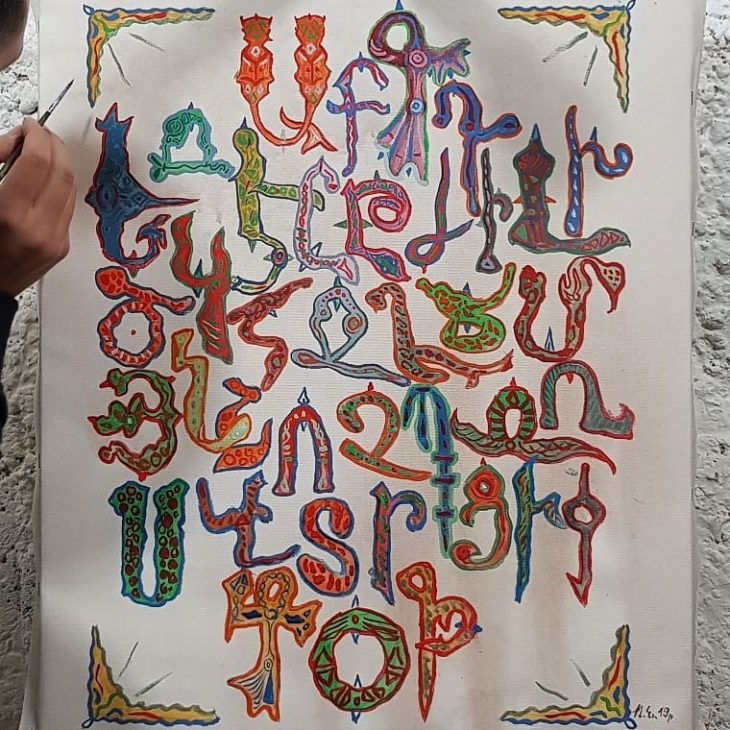 Ա Բ Գ Դ
Ե Զ Է Ը Թ Ժ Ի Լ Խ
Ծ Կ Հ Ձ Ղ Ճ Մ
Յ Ն Շ Ո Չ Պ Ջ Ռ
Ս Վ Տ Ր Ց Ւ Փ
Ք Օ Ֆ